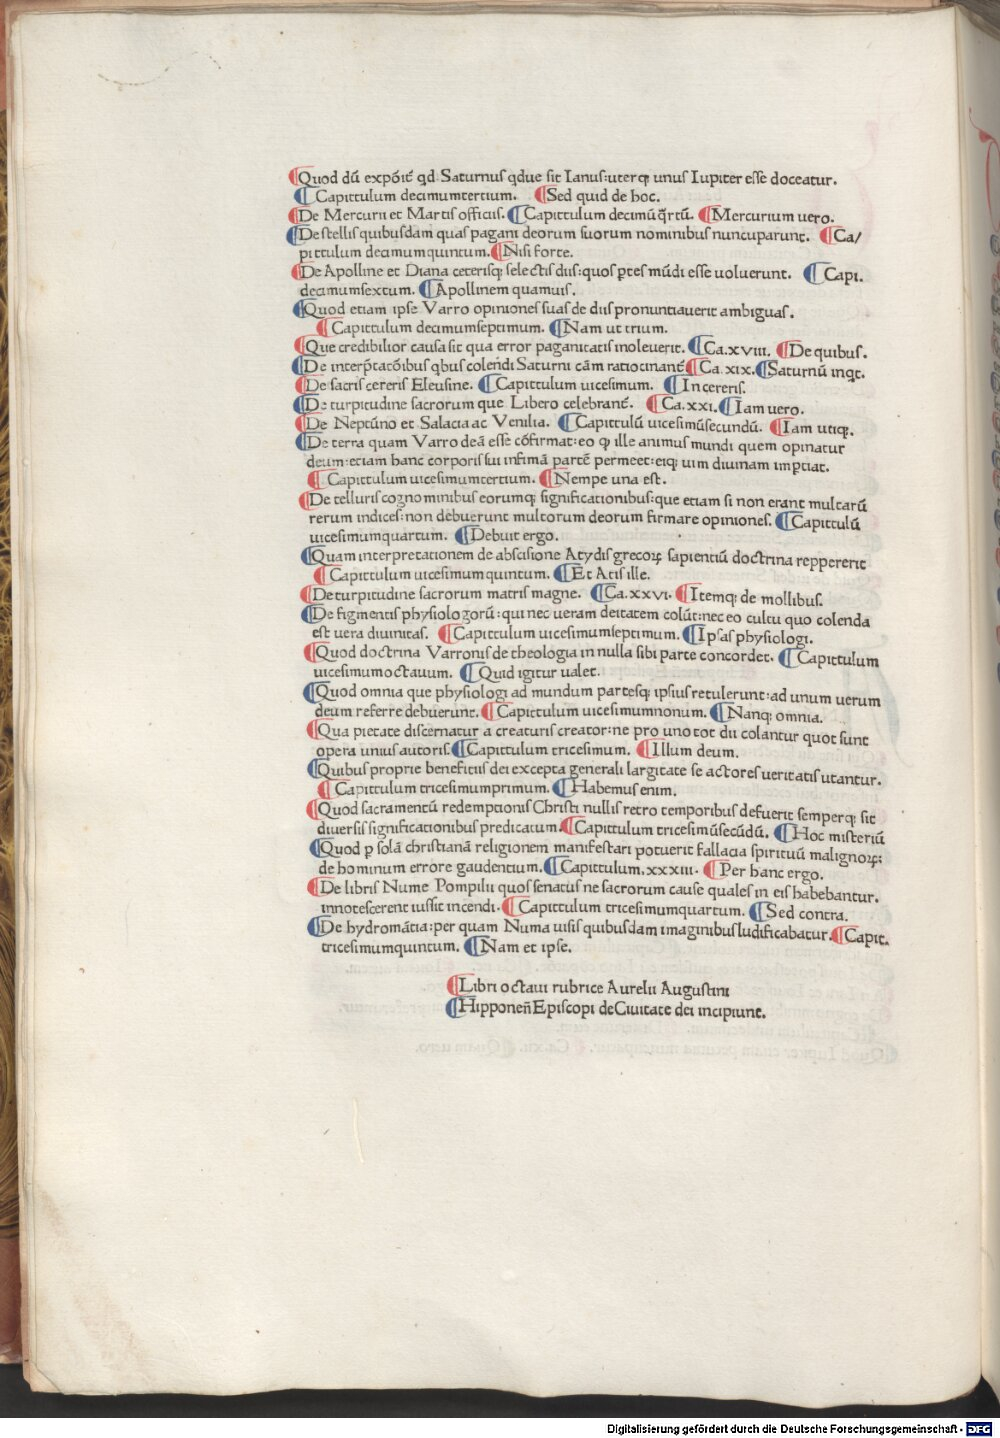 ¶Quod dū expōit̄ qd Saturnus qdue sit Ianus: uterq; unus Iupiter esse doceatur.
¶Capittulum decimumtertium. ¶Sed quid de hoc.
¶De Mercurii et Martis officiis. ¶Capittulum decimū q̄rtū. ¶Mercurium uero.
¶De stellis quibusdam quas pagani deorum suorum nominibus nuncuparunt. ¶Ca/
pittulum decimumquintum. ¶Nisi forte.
¶De Apolline et Diana ceterisq; selectis diis: quos ptes mūdi esse uoluerunt. ¶Capi.
decimumsextum. ¶Apollinem quamuis.
¶Quod etiam ipse Varro opiniones suas de diis pronuntiauerit ambiguas.
¶Capittulum decimumseptimum. ¶Nam ut trium.
¶Que credibilior causa sit qua error paganitatis inoleuerit. ¶Ca.xviii. ¶De quibus.
¶De interp̄tatōibus qbus colendi Saturni cām ratiocinant̄ ¶Ca.xix. ¶Saturnū inqt.
¶De sacris cereris Eleusine. ¶Capittulum uicesimum. ¶In cereris.
¶De turpitudine sacrorum que Libero celebrant̄. ¶Ca.xxi. ¶Iam uero.
¶De Neptūno et Salacia ac Venilia. ¶Capittulū uicesimūsecundū. ¶Iam utiq.
¶De terra quam Varro deā esse cōfirmat: eo q ille animus mundi quem opinatur
deum: etiam hanc corporis sui infimā partē permeet: eiq; uim diuinam impciat.
¶Capittulum uicesimumtertium. ¶Nempe una est.
¶De telluris cognominibus eorumq; significationibus: que etiam si non erant multarū
rerum indices: non debuerunt multorum deorum firmare opiniones. ¶Capittulū
uicesimumquartum. ¶Debuit ergo.
¶Quam interpretationem de abscisione Atydis grecoꝝ sapientiū doctrina reppererit
¶Capittulum uicesimumquintum. ¶Et Atis ille.
¶De turpitudine sacrorum matris magne. ¶Ca.xxvi. ¶Itemq; de mollibus.
¶De figmentis physiologorū: qui nec ueram deitatem colūt: nec eo cultu quo colenda
est uera diuinitas. ¶Capittulum uicesimumseptimum. ¶Ipsas physiologi.
¶Quod doctrina Varronis de theologia in nulla sibi parte concordet. ¶Capittulum
uicesimumoctauum. ¶Quid igitur ualet.
¶Quod omnia que physiologi ad mundum partesq; ipsius retulerunt: ad unum uerum
deum referre debuerunt. ¶Capittulum uicesimumnonum. ¶Nanq; omnia.
¶Qua pietate discernatur a creaturis creator: ne pro uno tot dii colantur quot sunt
opera unius autoris. ¶Capittulum tricesimum. ¶Illum deum.
¶Quibus proprie beneficiis dei excepta generali largitate se actores ueritatis utantur.
¶Capittulum tricesimumprimum. ¶Habemus enim.
¶Quod sacramentū redemptionis Christi nullis retro temporibus defuerit semperq; sit
diuersis significationibus predicatum. ¶Capittulum tricesimūsecūdū. ¶Hoc misteriū
¶Quod p solā christianā religionem manifestari potuerit fallacia spirituū malignoꝝ:
de hominum errore gaudentium. ¶Capittulum.xxxiii. ¶Per hanc ergo.
¶De libris Nume Pompilii quos senatus ne sacrorum cause quales in eis habebantur.
innotescerent iussit incendi. ¶Capittulum tricesimumquartum. ¶Sed contra.
¶De hydromātia: per quam Numa uisis quibusdam imaginibus ludificabatur. ¶Capit.
tricesimumquintum. ¶Nam et ipse.
¶Libri octaui rubrice Aurelii Augustini
¶Hipponeñ Episcopi de Ciuitate dei incipiunt.
Digitalisierung gefördert durch die Deutsche Forschungsgemeinschaft - DFG